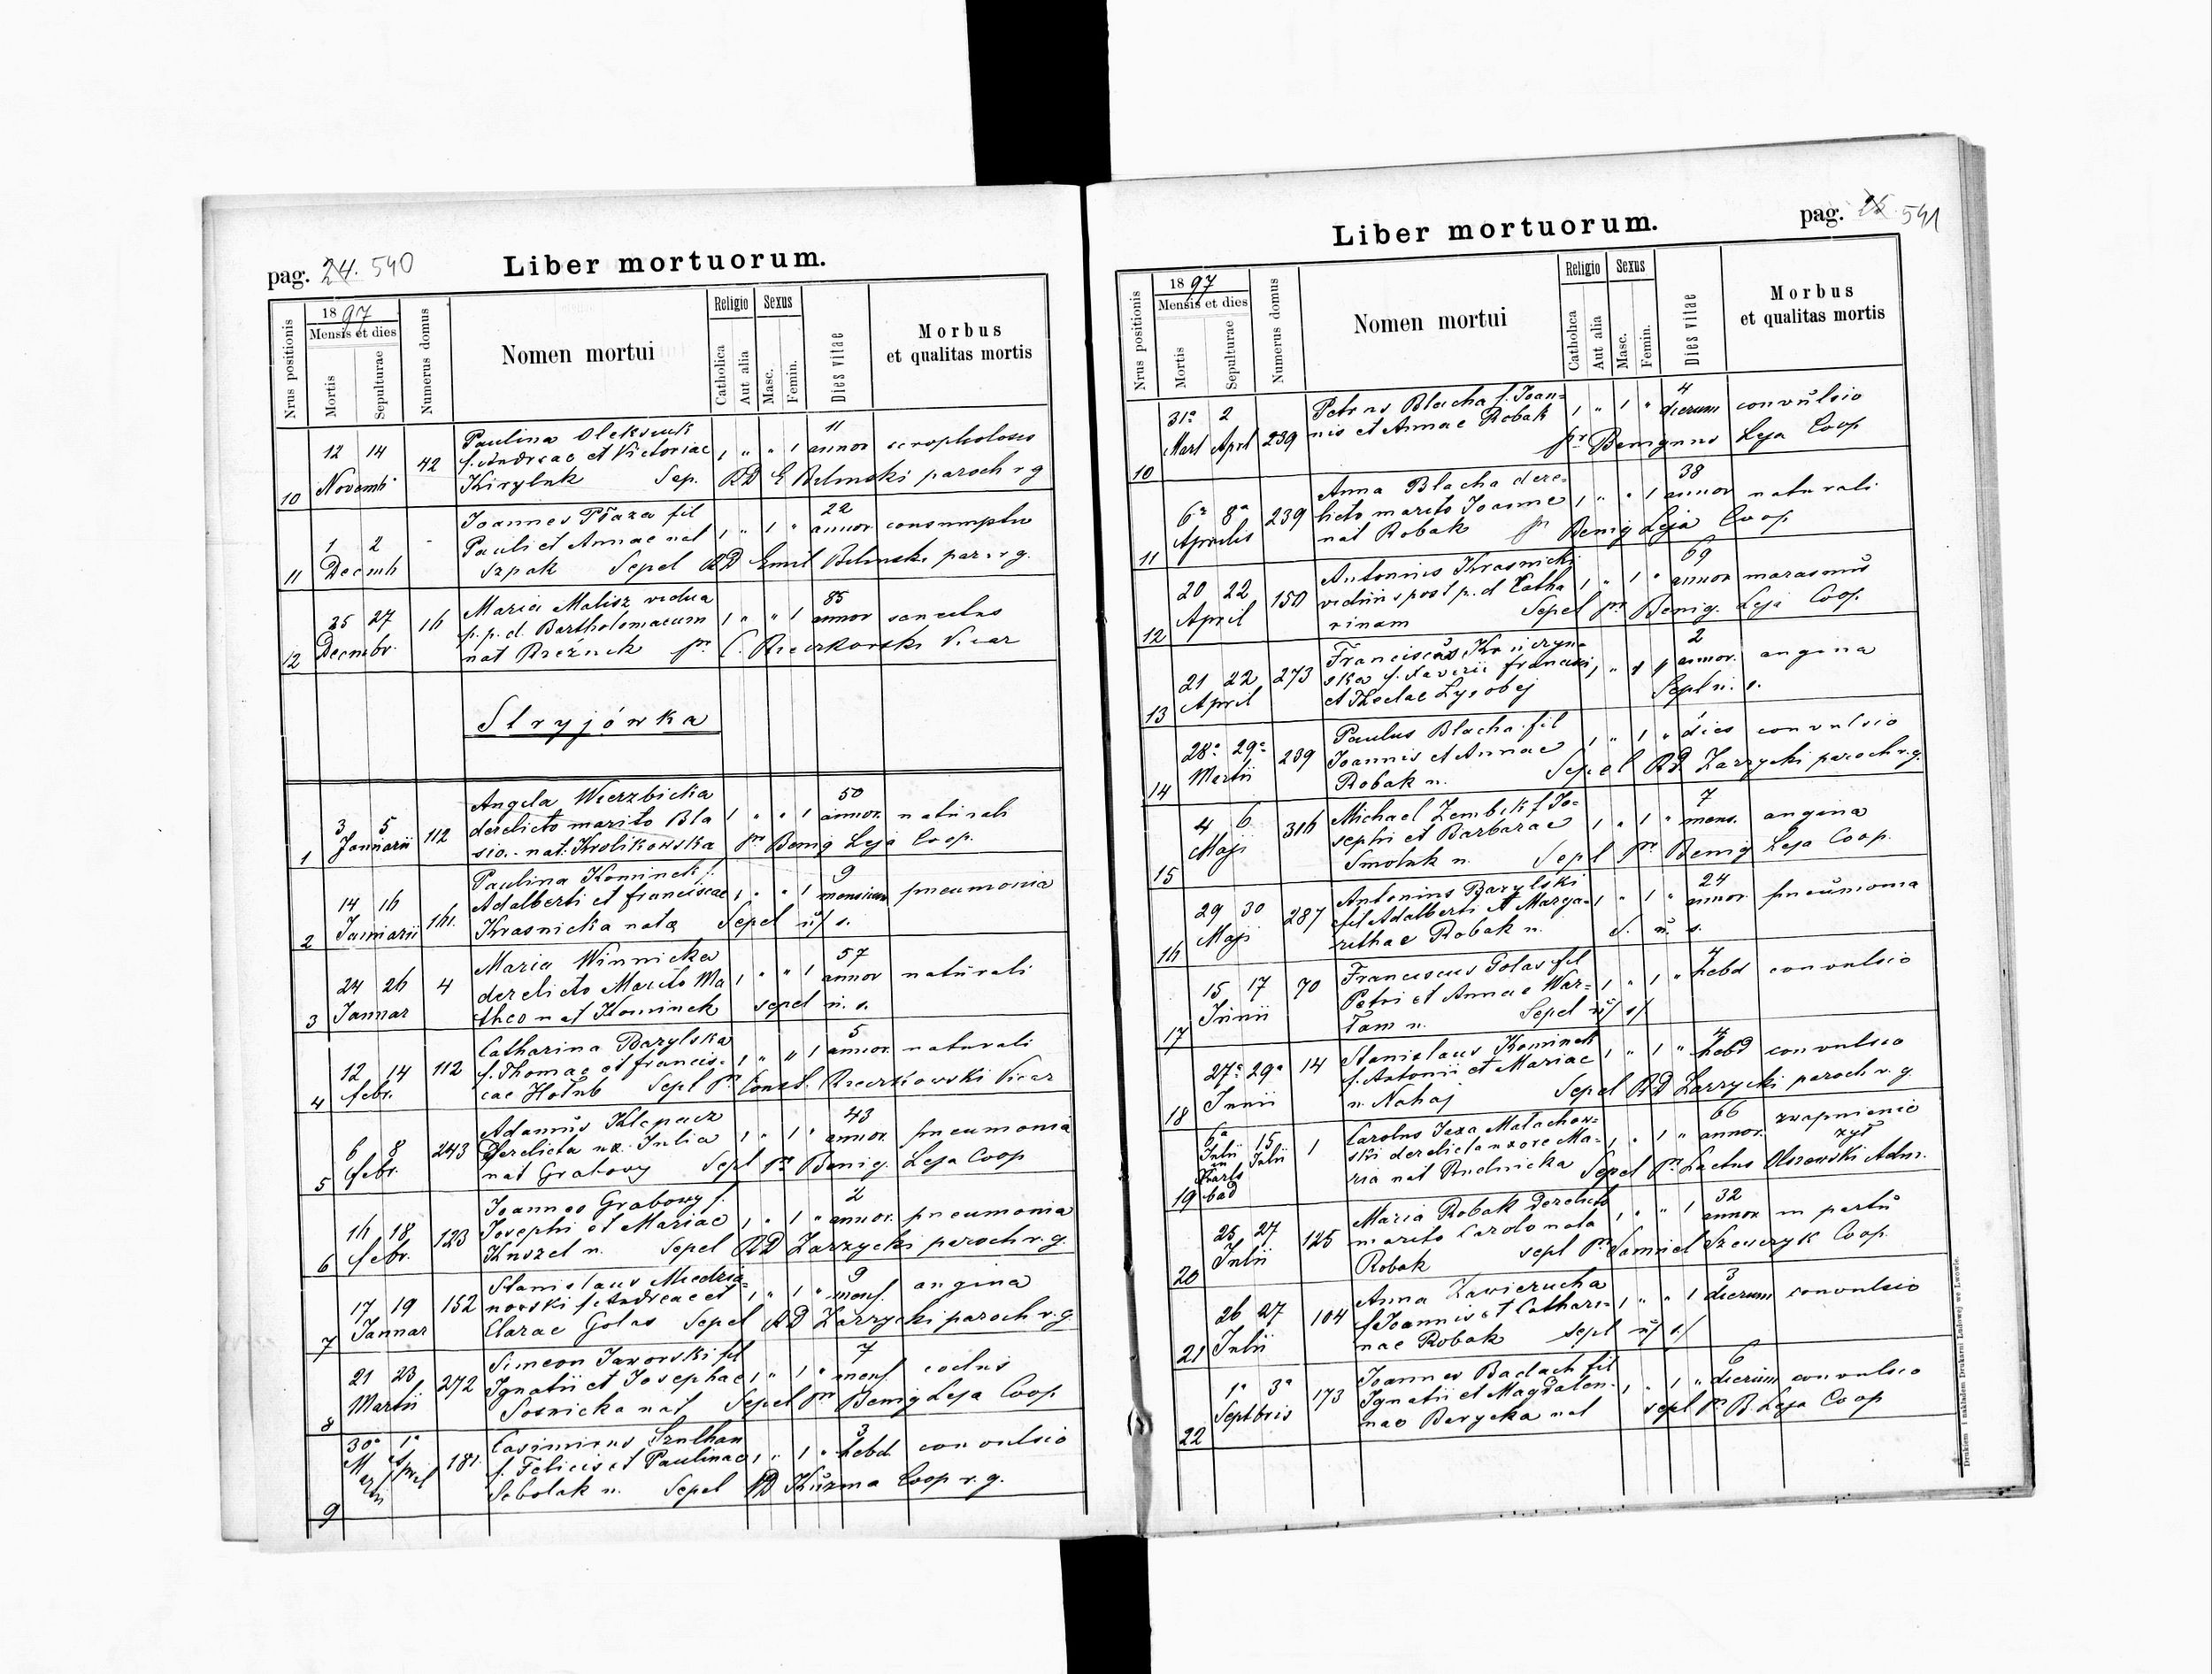 pag. 24. 540
Liber mortuorum.
Nrus positionis
1897
Mensis et dies
Mortis
Sepulturae
Numerus domus
Nomen mortui
Religio
Catholica
Aut alia
Sexus
Masc.
Femin.
Dies vitae
Morbus
et qualitas mortis
10 12 14 Novemb 42
Paulina Olekseuk
f. Andreae et Victoriae 1 " " 1 11 annor scropholosis
Kiryluk Sep. RD E Belinski paroch r g
11 1 2 Decemb -
Joannes Płaza fil
Pauli et Annae nat 1 " 1 " 22 annor consumptio
Szpak Sepel RD Emil Belinski par. r g.
12 25 27 Decembr. 16
Maria Malisz vidua
p. p. d. Bartholomaeum 1 " " 1 85 annor senectus
nat pr C. Vicar
Stryjówka
1 3 5 Januarii 112
Angela Wierzbicka
derelicto marito Bla 1 " " 1 50 annor. naturali
sio. nat. Krolikowska pr Benig Leja Coop.
2 14 16 Januarii 161.
Paulina Kominek f.
Adalberti et Franciscae 1 " " 1 9 mensium pneumonia
Krasnicka nata Sepel u/ s.
3 24 26 Januar 4
Maria Winnicka
derelicto Marito Ma 1 " " 1 57 annor naturali
theo nat Kominek sepel u. s.
4 12 14 febr. 112
Catharina Barylska
f. Thomae et francis- 1 " " 1 5 annor. naturali
cae Hołub Sepl pr Const. Vicar
5 6 8 febr. 243
Adamus Klepacz
Derelicta ux. Julia 1 " 1 " 43 annor. pneumonia
nat Grabowy Sepl pr Benig. Leja Coop
6 16 18 febr. 123
Joannes Grabowy f.
Josephi et Mariae 1 " 1 " 2 annor. pneumonia
Kuszel n. Sepel RD Zarzycki paroch r. g.
7 17 19 Januar 152
Stanislaus Miedzia-
nowski f. Andreae et 1 " 1 " 9 mens. angina
Clarae Golas Sepel RD Zarzycki paroch r. g
8 21 23 Martii 272
Simeon Jaworski fil
Ignatii et Josephae 1 " 1 " 7 mens.
Sosnicka nat Sepel pr Benig Leja Coop
9 30a 1a Martii April 181.
Casimirus Szulhan
f. Felicis et Paulinae 1 " 1 " 3 hebd convulsio
Sobolak n. Sepel RD Kuzma Coop r. g.
pag. 25 541
Liber mortuorum.
Nrus positionis
1897
Mensis et dies
Mortis
Sepulturae
Numerus domus
Nomen mortui
Religio
Catholica
Aut alia
Sexus
Masc.
Femin.
Dies vitae
Morbus
et qualitas mortis
10 31a 2 Mart April 239
Petrus Blacha f. Joan-
nis et Annae Robak 1 " 1 " 4 dierum convulsio
pr Benignus Leja Coop
11 6a 8a Aprilis 239
Anna Blacha dere-
licto marito Joanne 1 " " 1 38 annor naturali
nat Robak pr Benig Leja Coop
12 20 22 April 150
Antonius Krasnicki
viduus post p. d Catha 1 " 1 " 69 annor marasmus
rinam Sepel pr Benig. Leja Coop.
13 21 22 April 273
ska f. Xaverii Francisci 1 " 2 annor. angina
et Theclae Łysobej Sepl u. s.
14 28a 29a Martii 239
Paulus Blacha fil
Joannis et Annae 1 " 1 " 1 dies convulsio
Robak n. Sepel RD Zarzycki paroch r. g.
15 4 6 Maji 316
Michael Zembik f Jo-
sephi et Barbarae 1 " 1 " 7 mens. angina
Smoluk n. Sepl pr Benig Leja Coop.
16 29 30 Maji 287
Antonius Barylski
fil Adalberti et Marga- 1 " 1 " 24 annor. pneumonia
rithae Robak n. S. u. s.
17 15 17 Junii 70
Franciscus Golas fil
Petri et Annae War- 1 " 1 " 4 hebd convulsio
łam n. Sepel u/ s/
18 27a 29a Junii 14
Stanislaus Kominek
f. Antonii et Mariae 1 " 1 " 4 hebd convulsio
n. Nahaj Sepel RD Zarzycki paroch r. g.
19 6a Julii in Karls bad 15 Julii 1
Carolus Jaxa Małachow-
ski derelicta uxore Ma- 1 " 1 " 66 annor. zwapnienie
ria nat Rudnicka żył
Sepel pr Lactus Olszewski Adm.
20 25 27 Julii 125
Maria Robak Derelicto
marito Carolo nata 1 " " 1 32 annor in partu
Robak sepl pr Samuel Szewczyk Coop.
21 26 27 Julii 104
Anna Zawierucha
f Joannis et Cathari- 1 " " 1 3 dierum convulsio
nae Robak sepl u/ s/
22 1a 3a Septbris 173
Joannes Badach fil
Ignatii et Magdalen- 1 " 1 " 6 dierum convulsio
nae Barycka nat sepl pr B. Leja Coop
Drukiem i nakładem Drukarni Ludowej we Lwowie.